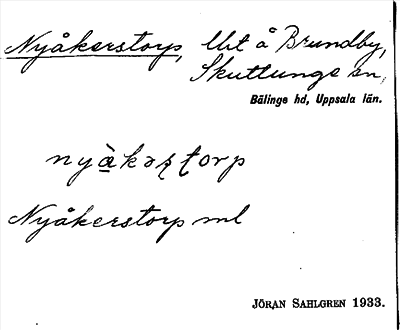 Nyåkerstorp, lht å Brundby,
Skuttunge sn,
Bälinge hd, Uppsala län.
nyàkəʂʈorp
Nyåkerstorp ml
JÖRAN SAHLGREN 1933.